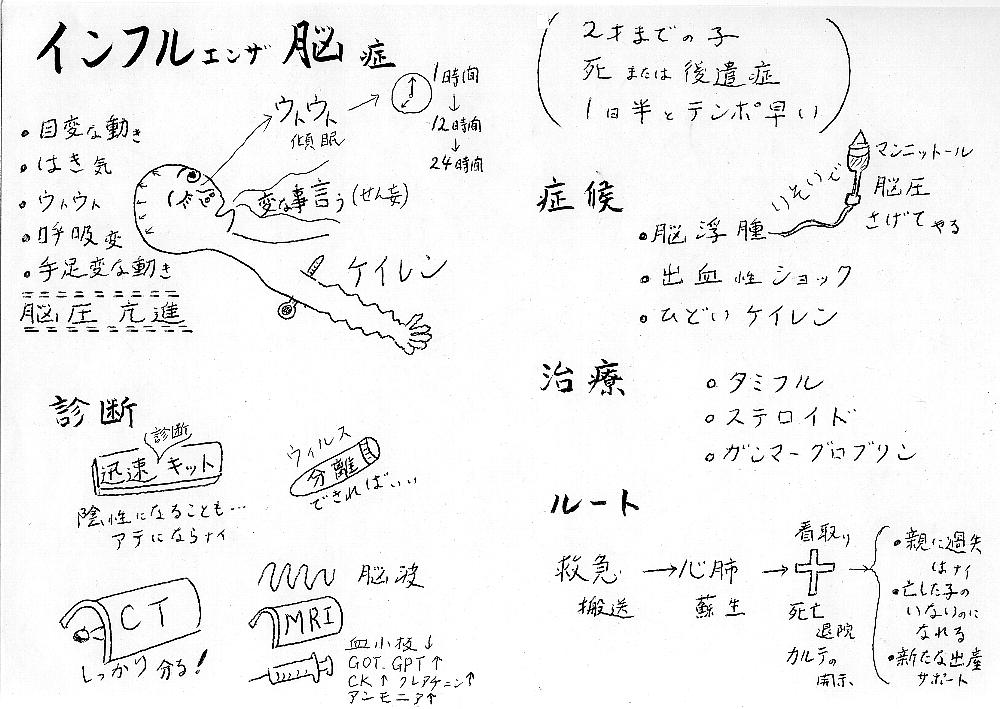 インフルエンザ脳症
・目変な動き
・はき気
・ウトウト
・呼吸変
・手足変な動き
脳圧亢進
ウトウト
傾眠
1時間
↓
12時間
↓
24時間
変な事言う(せん妄)
ケイレン
診断
診断
迅速キット
陰性になることも…
アテにならナイ
ウィルス
分離
できればいい
CT
しっかり分る!
脳波
MRI
血小板↓
GOT.GPT↑
CK↑クレアチニン↑
アンモニア↑
2才までの子
死または後遺症
1日半とテンポ早い
症候
・脳浮腫
いそいで
マンニットール
脳圧
さげてやる
・出血性ショック
・ひどいケイレン
治療
○タミフル
○ステロイド
○ガンマーグロブリン
ルート
救急
搬送
→心肺
蘇生
→
看取り
死亡
退院
カルテの
開示
→
・親に過失
はナイ
・亡した子の
いないのに
なれる
・新たな出産
サポート